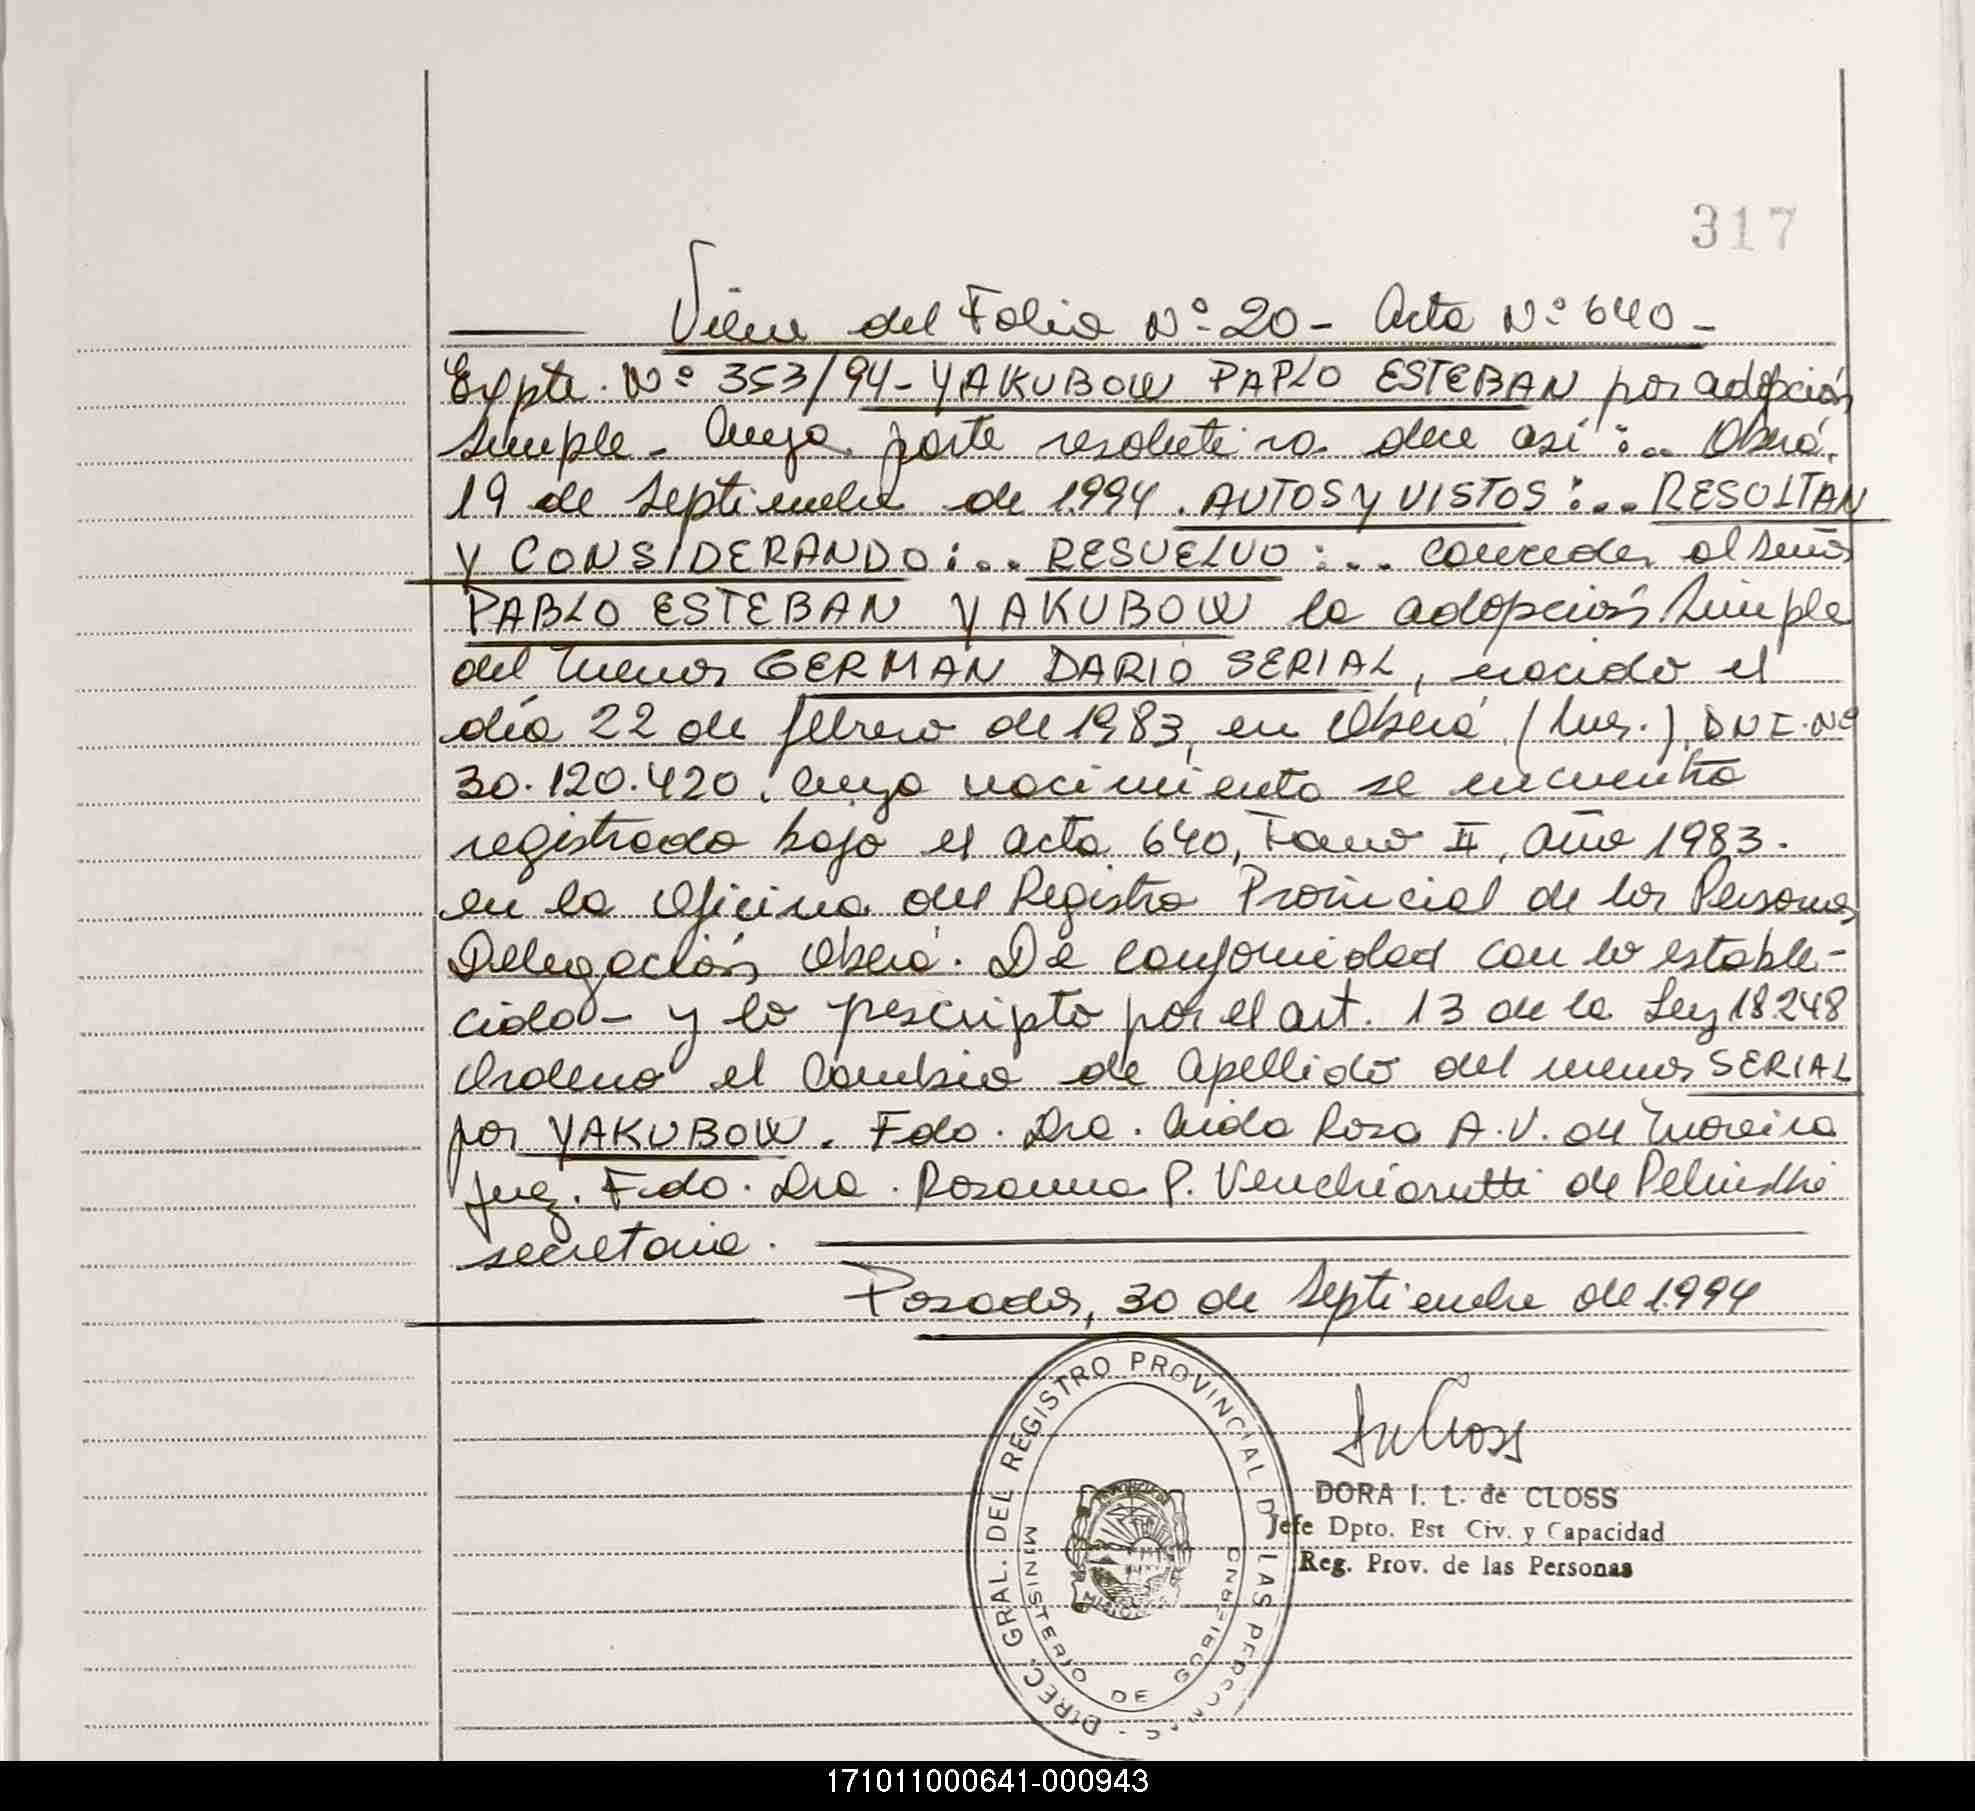 317
Viene del Folio Nº 20 - Acta Nº 640 -
Expte. Nº 353/94 - YAKUBOW PAPLO ESTEBAN por adopción
simple - Cuya parte resolutiva dice así :.. Oberá,
19 de Septiembre de 1994. AUTOS Y VISTOS :... RESULTAN
Y CONSIDERANDO :... RESUELVO :... Conceder al señor
PABLO ESTEBAN YAKUBOW la adopción Simple
del menor GERMAN DARIO SERIAL, nacido el
día 22 de febrero de 1983, en Oberá (Mnes.), DNI. Nº
30.120.420. Cuyo nacimiento se encuentra
registrado bajo el acta 640, Tomo II, Año 1983.
en la Oficina del Registro Provincial de las Personas
Delegación Oberá. De conformidad con lo estable-
cido - y lo prescripto por el art. 13 de la Ley 18248
Ordeno el Cambio de Apellido del menor SERIAL
por YAKUBOW. Fdo. Dra. Rosa A. V. de Moreira
Juez. Fdo. Dra. Rosanna P. Venchiarutti de
secretaria.
Posadas, 30 de Septiembre de 1994
DIREC. GRAL. DEL REGISTRO PROVINCIAL DE LAS PERSONAS
MINISTERIO DE GOBIERNO
MISIONES
DORA I. L. de CLOSS
Jefe Dpto. Est Civ. y Capacidad
Reg. Prov. de las Personas
171011000641-000943